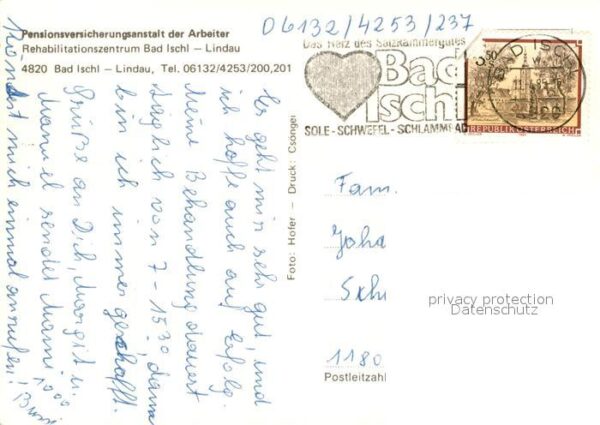 Pensionsversicherungsanstalt der Arbeiter
Rehabilitationszentrum Bad Ischl – Lindau
4820 Bad Ischl – Lindau, Tel. 06132/4253/200,201
06132/4253/237
Das Herz des Salzkammergutes
Bad
Ischl
SOLE - SCHWEFEL - SCHLAMMBAD
BAD ISCHL
4820
REPUBLIK ÖSTERREICH
Es geht mir sehr gut, und
ich hoffe auch auf Erfolg.
Meine Behandlung dauert
täglich von 7 - 15 30, dann
bin ich immer geschafft.
Grüße an Dich, Margit u.
Manuel sendet Mami
Könntest mich einmal anrufen!
Foto: Hofer – Druck: Csongei
Fam.
Joha
Schr
1180
Postleitzahl
privacy protection
Datenschutz